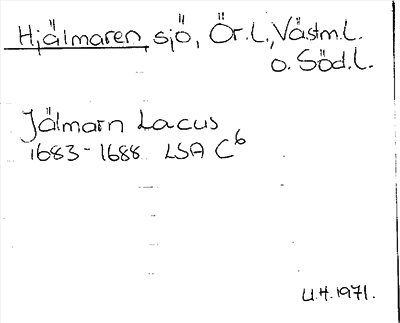 Hjälmaren, sjö, Ör.L., Västm.L.
o. Söd.L.
Jälmarn Lacus
1683-1688 LSA C6
U.H. 1971.